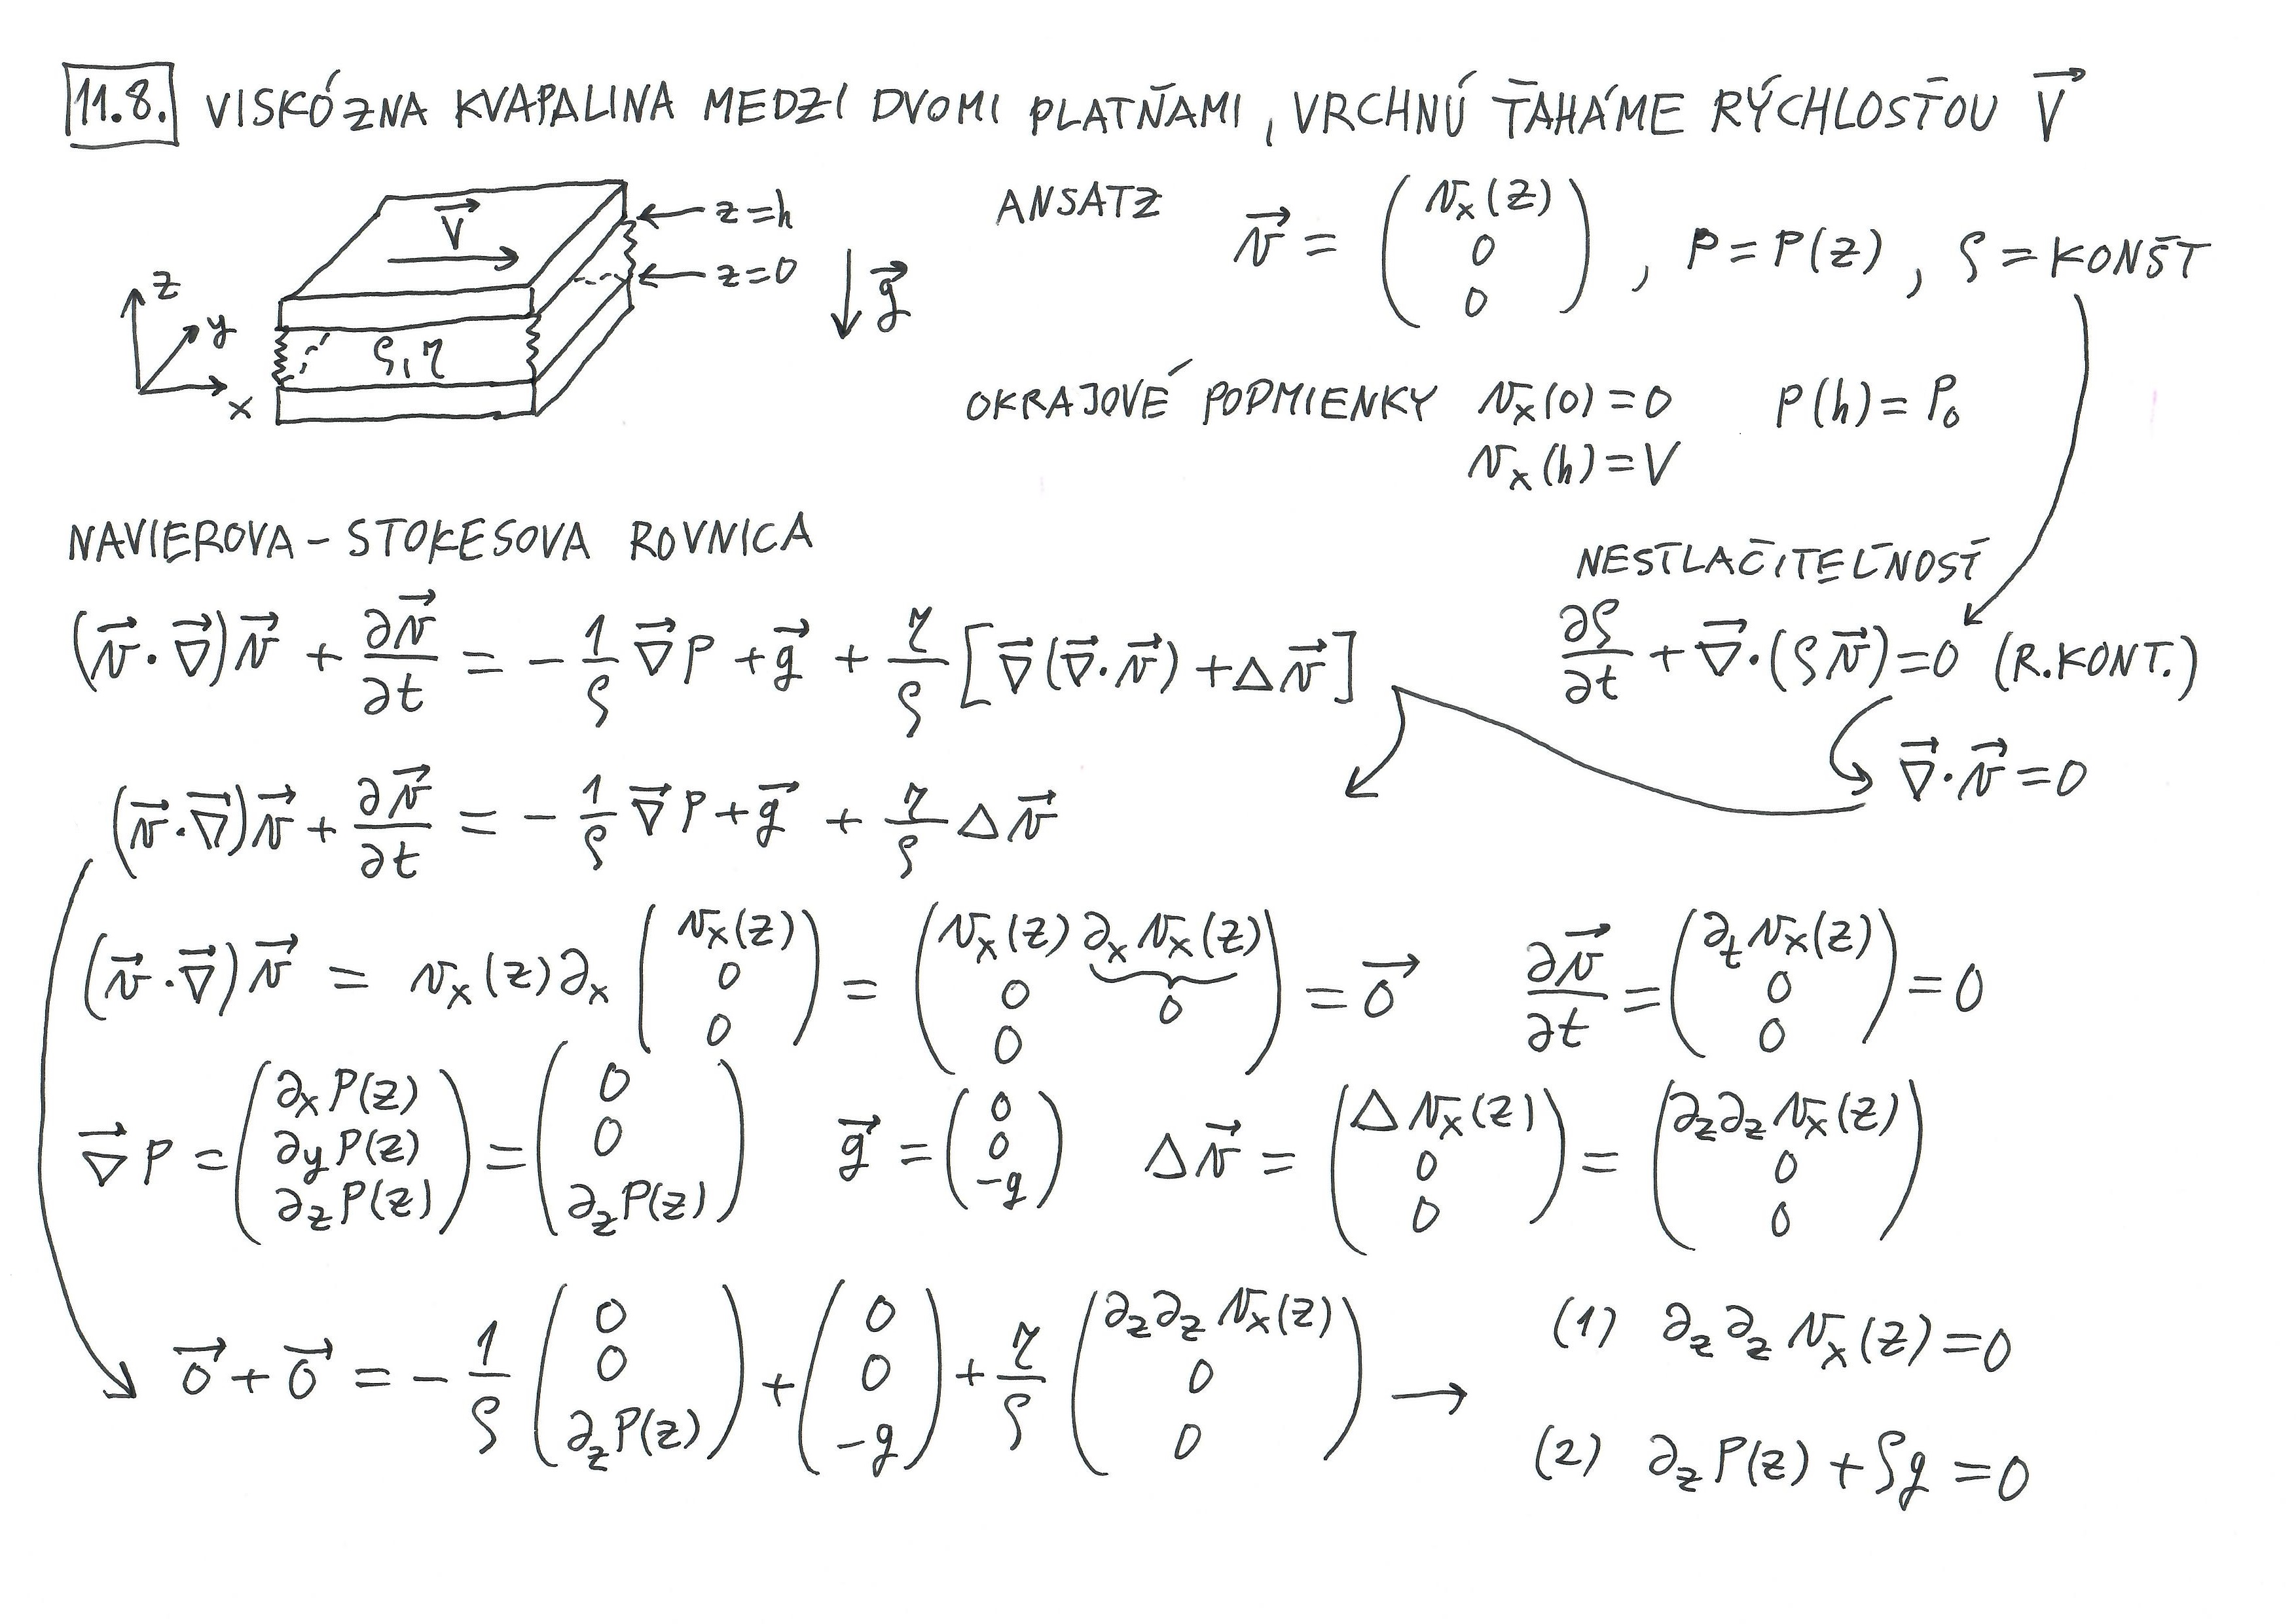 11.8. VISKÓZNA KVAPALINA MEDZI DVOMI PLATŇAMI, VRCHNÚ ŤAHÁME RÝCHLOSŤOU \vec{V}
\vec{V}
z=h
z=0
\vec{g}
z
y
x
ρ, η
ANSATZ \vec{v} = \begin{pmatrix} v_x(z) \\ 0 \\ 0 \end{pmatrix}, P = P(z), ρ = KONŠT
OKRAJOVÉ PODMIENKY v_x(0) = 0 P(h) = P_0
v_x(h) = V
NAVIEROVA - STOKESOVA ROVNICA
NESTLAČITEĽNOSŤ
(\vec{v}·\vec{∇})\vec{v} + \frac{∂\vec{v}}{∂t} = -\frac{1}{ρ}\vec{∇}P + \vec{g} + \frac{η}{ρ}[\vec{∇}(\vec{∇}·\vec{v}) + Δ\vec{v}]
\frac{∂ρ}{∂t} + \vec{∇}·(ρ\vec{v}) = 0 (R.KONT.)
\vec{∇}·\vec{v} = 0
(\vec{v}·\vec{∇})\vec{v} + \frac{∂\vec{v}}{∂t} = -\frac{1}{ρ}\vec{∇}P + \vec{g} + \frac{η}{ρ}Δ\vec{v}
(\vec{v}·\vec{∇})\vec{v} = v_x(z)∂_x \begin{pmatrix} v_x(z) \\ 0 \\ 0 \end{pmatrix} = \begin{pmatrix} v_x(z) \underbrace{∂_x v_x(z)}_{0} \\ 0 \\ 0 \end{pmatrix} = \vec{0} \frac{∂\vec{v}}{∂t} = \begin{pmatrix} ∂_t v_x(z) \\ 0 \\ 0 \end{pmatrix} = 0
\vec{∇}P = \begin{pmatrix} ∂_x P(z) \\ ∂_y P(z) \\ ∂_z P(z) \end{pmatrix} = \begin{pmatrix} 0 \\ 0 \\ ∂_z P(z) \end{pmatrix} \vec{g} = \begin{pmatrix} 0 \\ 0 \\ -g \end{pmatrix} Δ\vec{v} = \begin{pmatrix} Δ v_x(z) \\ 0 \\ 0 \end{pmatrix} = \begin{pmatrix} ∂_z∂_z v_x(z) \\ 0 \\ 0 \end{pmatrix}
\vec{0} + \vec{0} = -\frac{1}{ρ} \begin{pmatrix} 0 \\ 0 \\ ∂_z P(z) \end{pmatrix} + \begin{pmatrix} 0 \\ 0 \\ -g \end{pmatrix} + \frac{η}{ρ} \begin{pmatrix} ∂_z∂_z v_x(z) \\ 0 \\ 0 \end{pmatrix} →
(1) ∂_z∂_z v_x(z) = 0
(2) ∂_z P(z) + ρg = 0